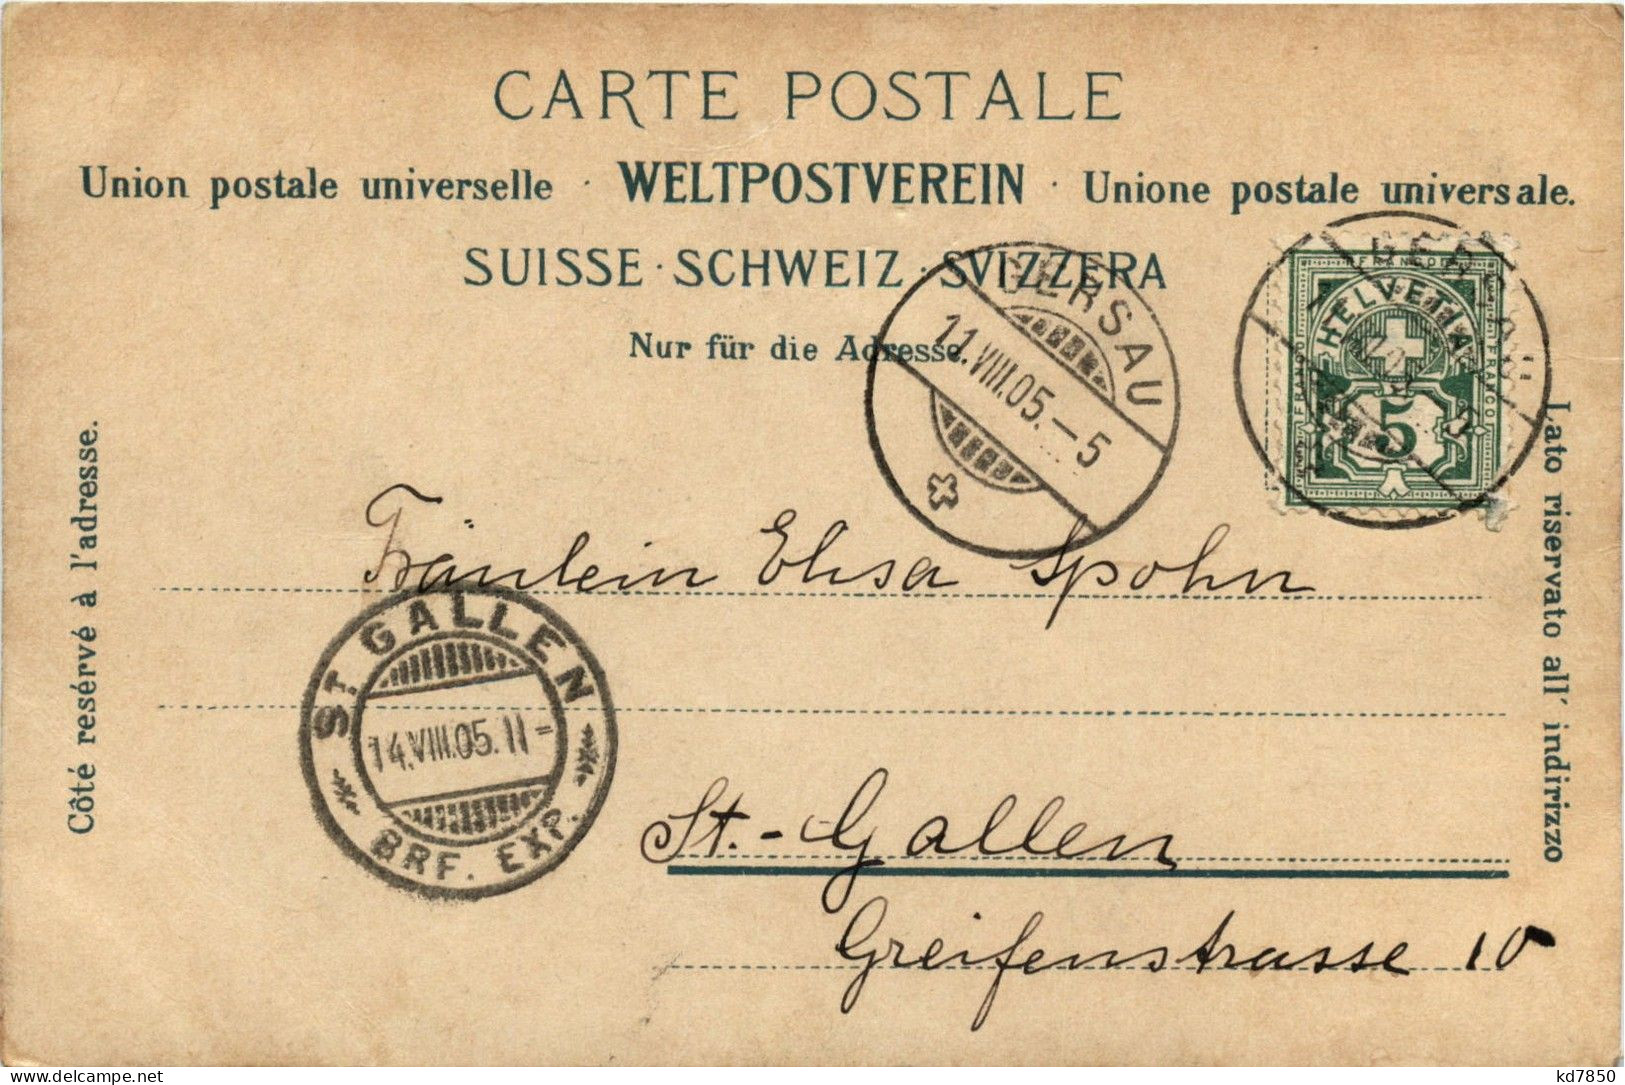 CARTE POSTALE
Union postale universelle · WELTPOSTVEREIN · Unione postale universale.
SUISSE · SCHWEIZ · SVIZZERA
Nur für die Adresse.
GERSAU
11.VIII.05.-5
FRANCO
HELVETIA
FRANCO
FRANCO
5
Côté resérvé à l'adresse.
Lato riservato all' indirizzo
Fräulein Elisa Spohn
ST. GALLEN
14.VIII.05.11-
BRF. EXP.
St.-Gallen
Greifenstrasse 10
kd7850